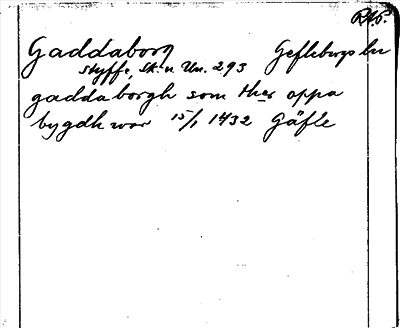 RAP.
Gaddaborg Gefleborgs län
Styffe, Sk. u. Un. 293
gaddaborgh som ther oppa
bygdh war 15/1 1432 Gäfle